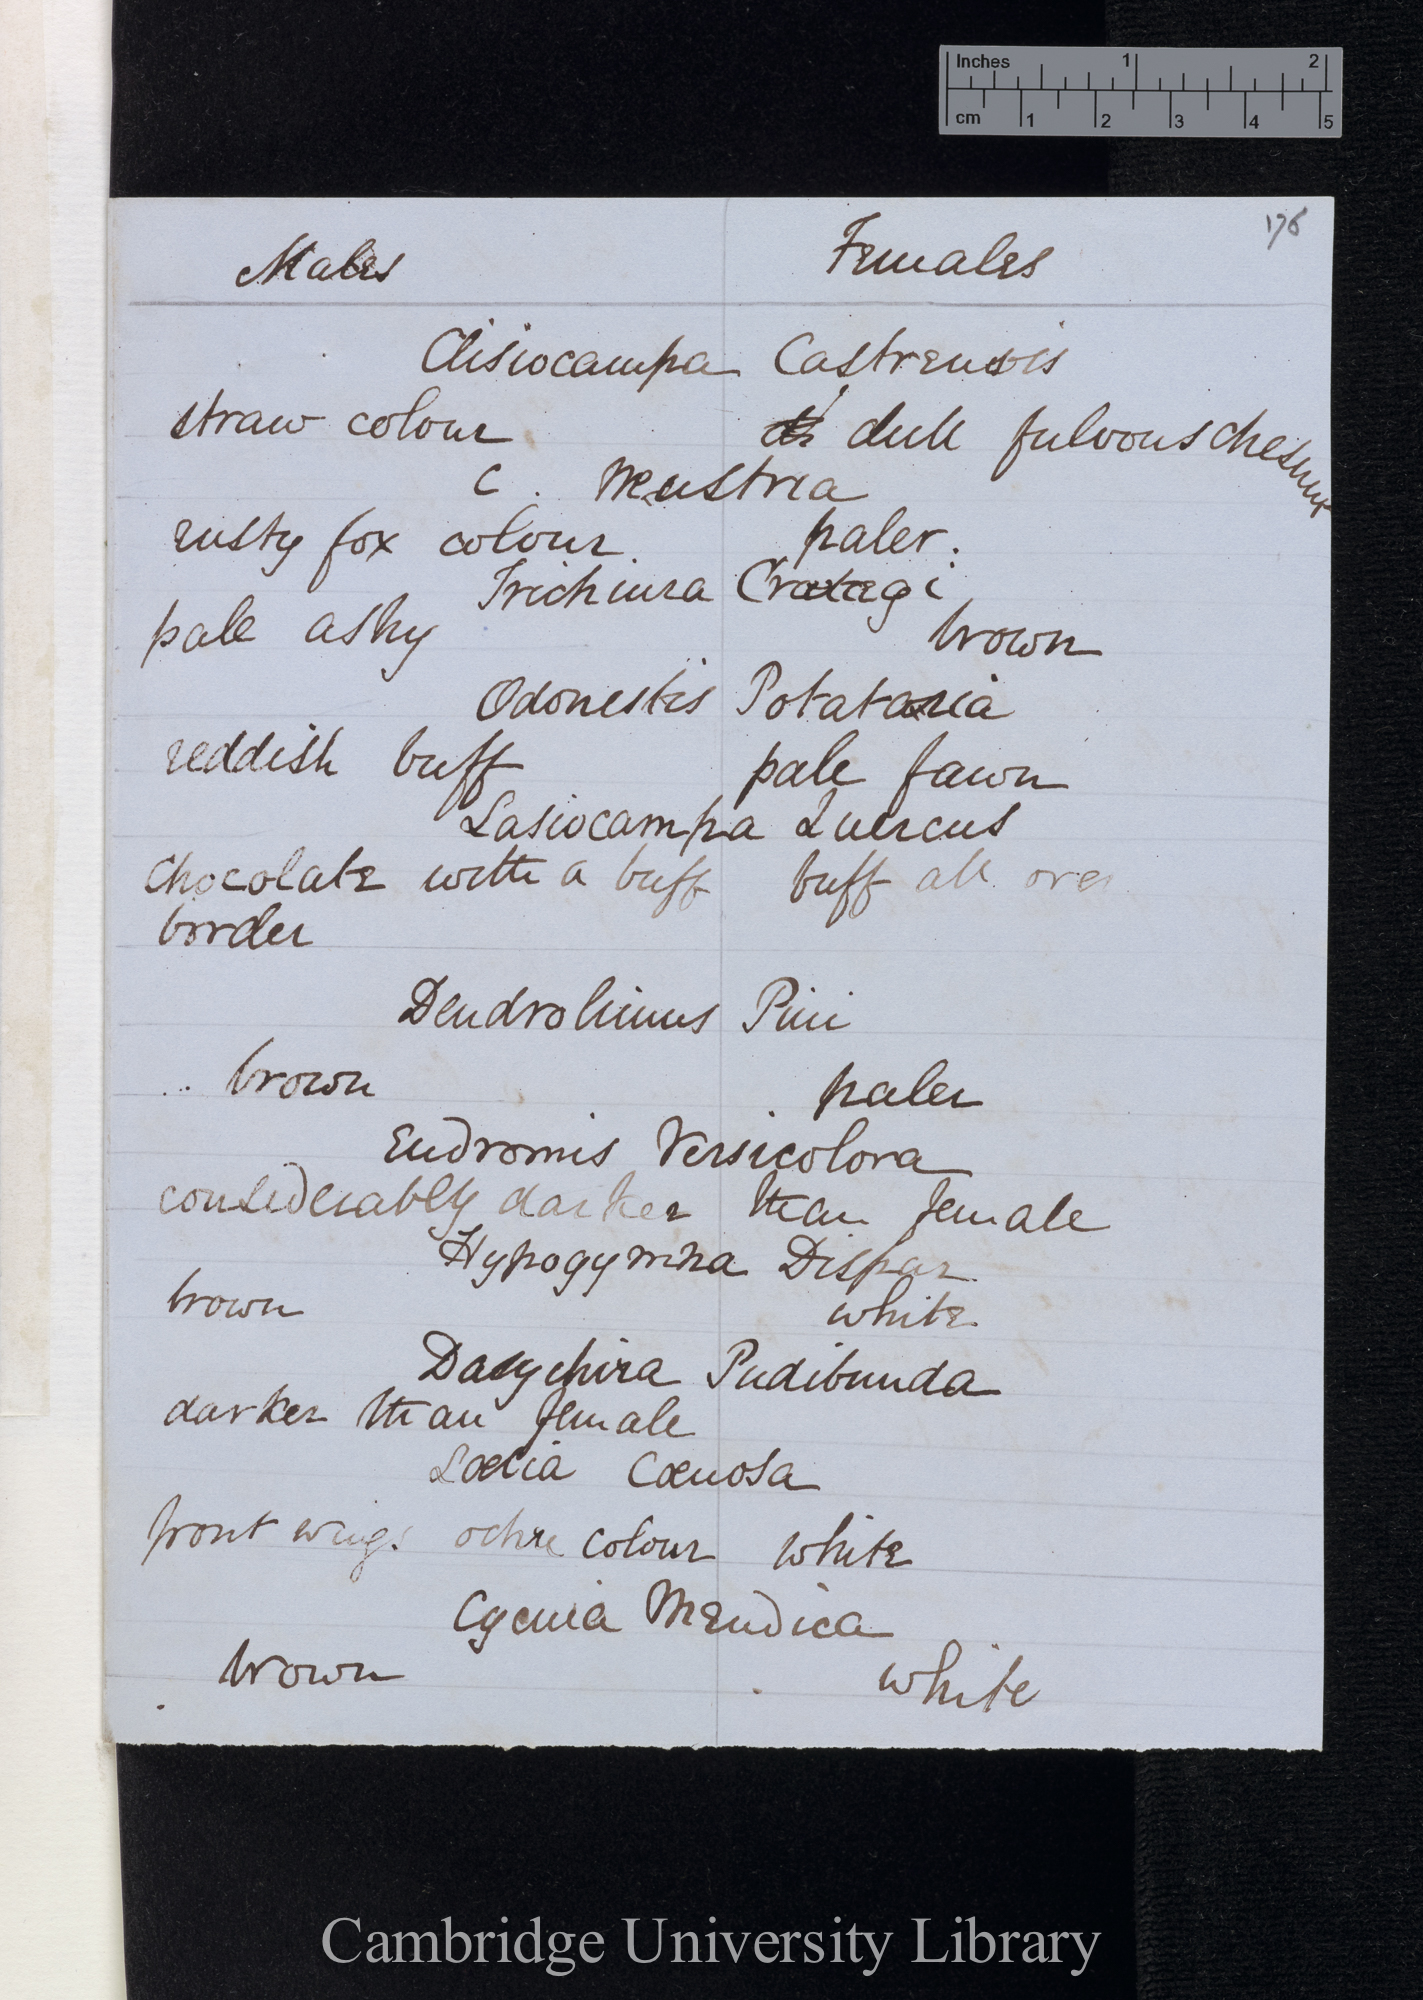 Inches 1 2
cm 1 2 3 4 5
176
Males Females
Clisiocampa Castrensis
straw colour dull fulvous chesnut
C. Neustria
rusty fox colour paler.
Trichiura Cratagi
pale ashy brown
Odonestis Potataria
reddish buff pale fawn
Lasiocampa Quercus
chocolate with a buff buff all over
border
Dendrolimus Pini
brown paler
Endromis Versicolora
considerably darker than female
Hypogymna Dispar
brown white
Dasychira Pudibunda
darker than female
Lœlia Cœnosa
front wings ochre colour white
Cycnia Mendica
brown white
Cambridge University Library